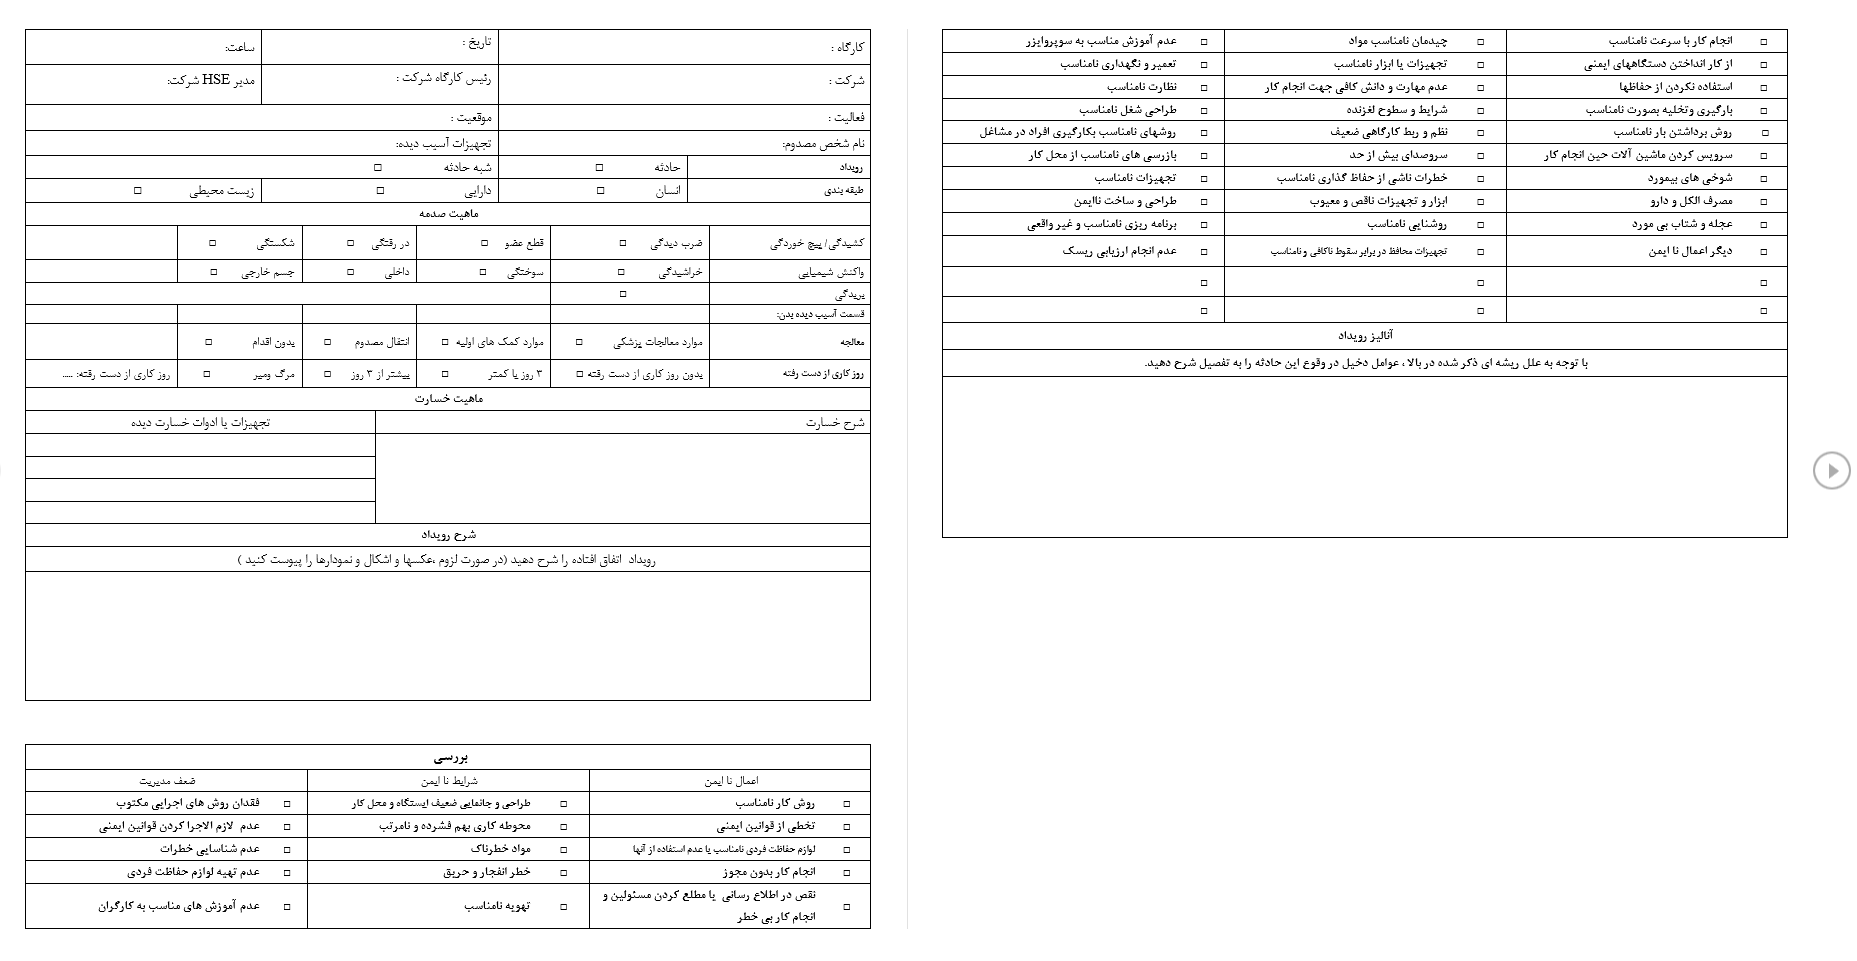 کارگاه :	تاریخ :	ساعت:
شرکت :	رئیس کارگاه شرکت :	مدیر HSE شرکت:
فعالیت :	موقعیت :
نام شخص مصدوم:	تجهیزات آسیب دیده:
رویداد	حادثه □	شبه حادثه □
طبقه بندی	انسان □	دارایی □	زیست محیطی □
ماهیت صدمه
کشیدگی/ پیچ خوردگی	ضرب دیدگی □	قطع عضو □	در رفتگی □	شکستگی □
واکنش شیمیایی	خراشیدگی □	سوختگی □	داخلی □	جسم خارجی □
بریدگی	□
قسمت آسیب دیده بدن:
معالجه	موارد معالجات پزشکی □	موارد کمک های اولیه □	انتقال مصدوم □	بدون اقدام □
روز کاری از دست رفته	بدون روز کاری از دست رفته □	۳ روز یا کمتر □	بیشتر از ۳ روز □	مرگ ومیر □	روز کاری از دست رفته: .....
ماهیت خسارت
شرح خسارت	تجهیزات یا ادوات خسارت دیده
شرح رویداد
رویداد اتفاق افتاده را شرح دهید (در صورت لزوم ،عکسها و اشکال و نمودارها را پیوست کنید )
بررسی
اعمال نا ایمن	شرایط نا ایمن	ضعف مدیریت
□ روش کار نامناسب	□ طراحی و جانمایی ضعیف ایستگاه و محل کار	□ فقدان روش های اجرایی مکتوب
□ تخطی از قوانین ایمنی	□ محوطه کاری بهم فشرده و نامرتب	□ عدم لازم الاجرا کردن قوانین ایمنی
□ لوازم حفاظت فردی نامناسب یا عدم استفاده از آنها	□ مواد خطرناک	□ عدم شناسایی خطرات
□ انجام کار بدون مجوز	□ خطر انفجار و حریق	□ عدم تهیه لوازم حفاظت فردی
□ نقص در اطلاع رسانی یا مطلع کردن مسئولین و
انجام کار بی خطر	□ تهویه نامناسب	□ عدم آموزش های مناسب به کارگران
□ انجام کار با سرعت نامناسب	□ چیدمان نامناسب مواد	□ عدم آموزش مناسب به سوپروایزر
□ از کار انداختن دستگاههای ایمنی	□ تجهیزات یا ابزار نامناسب	□ تعمیر و نگهداری نامناسب
□ استفاده نکردن از حفاظها	□ عدم مهارت و دانش کافی جهت انجام کار	□ نظارت نامناسب
□ بارگیری وتخلیه بصورت نامناسب	□ شرایط و سطوح لغزنده	□ طراحی شغل نامناسب
□ روش برداشتن بار نامناسب	□ نظم و ربط کارگاهی ضعیف	□ روشهای نامناسب بکارگیری افراد در مشاغل
□ سرویس کردن ماشین آلات حین انجام کار	□ سروصدای بیش از حد	□ بازرسی های نامناسب از محل کار
□ شوخی های بیمورد	□ خطرات ناشی از حفاظ گذاری نامناسب	□ تجهیزات نامناسب
□ مصرف الکل و دارو	□ ابزار و تجهیزات ناقص و معیوب	□ طراحی و ساخت ناایمن
□ عجله و شتاب بی مورد	□ روشنایی نامناسب	□ برنامه ریزی نامناسب و غیر واقعی
□ دیگر اعمال نا ایمن	□ تجهیزات محافظ در برابر سقوط ناکافی و نامناسب	□ عدم انجام ارزیابی ریسک
□	□	□
□	□	□
آنالیز رویداد
با توجه به علل ریشه ای ذکر شده در بالا ، عوامل دخیل در وقوع این حادثه را به تفصیل شرح دهید.